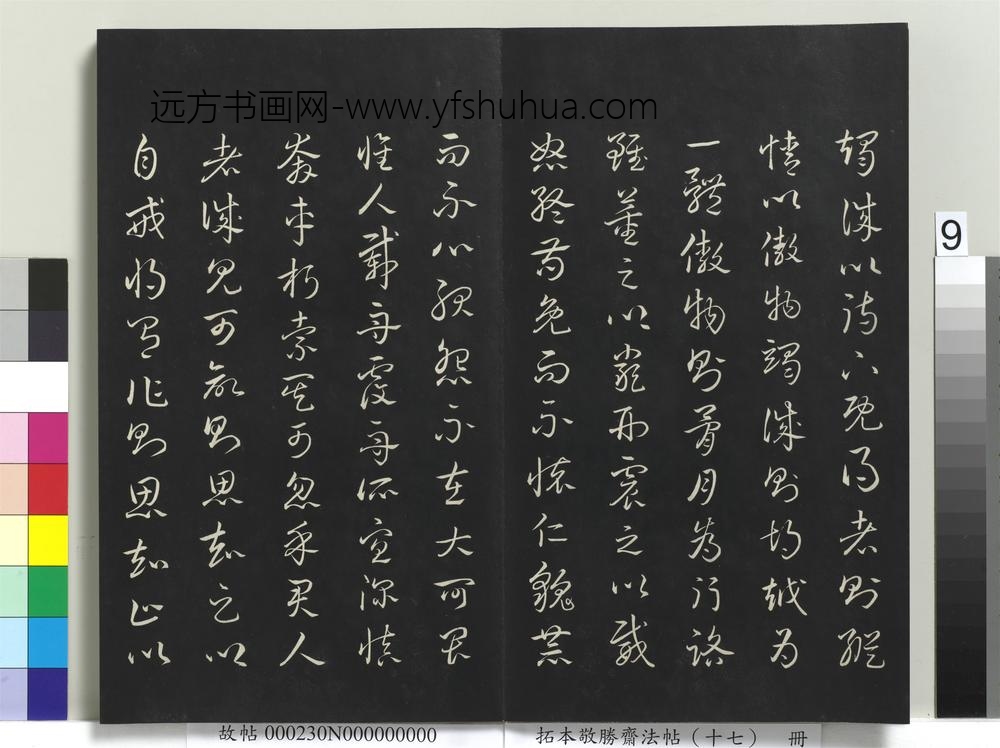 远方书画网-www.yfshuhua.com
竭誠以待下既得志則縱
情以傲物竭誠則胡越為
一體傲物則骨肉為行路
雖董之以嚴刑震之以威
怒終苟免而不懷仁貌恭
而不心服怨不在大可畏
惟人載舟覆舟所宜深慎
奔車朽索其可忽乎君人
者誠見可欲則思知足以
自戒將有作則思知止以
9
故帖 000230N000000000
拓本敬勝齋法帖（十七） 冊